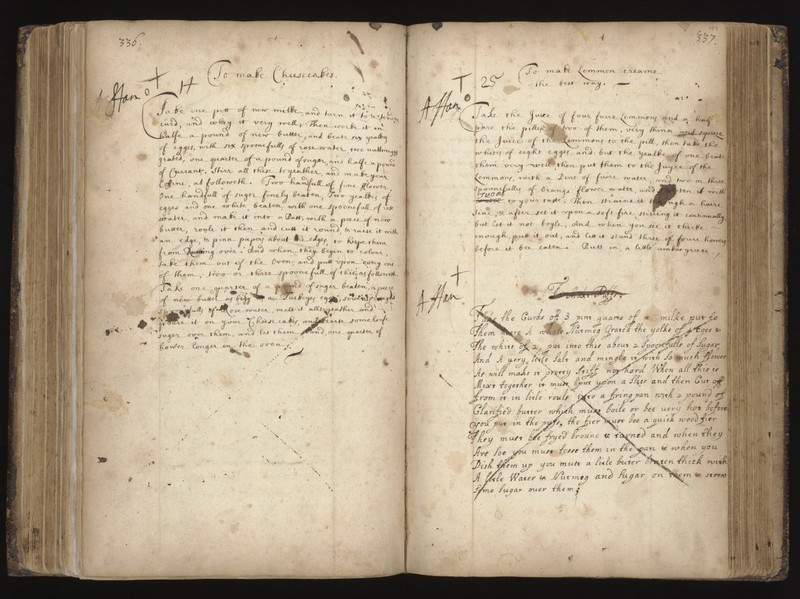 336.
A Han o + 14
To make Cheesecakes.
Take one pott of new milke, and turn it to a
curd, and whey it very well, Then worke it in
halfe a pound of new butter, and beate six yealks
of egges, with six spoonefulls of rosewater, two nuttmeggs
grated, one quarter of a pound of suger, and halfe a pound
of Currans. Stirr all these togeather, and make your
Coffins, as followeth. Two handfull of fine flower
One handfull of suger finely beaten, Two yealks of
egges and one white beaten, with one spoonefull of
water, and make it into a Past; with a peece of new
butter, rowle it then, and cutt it round, & raise it with
an edge, & pinn papers about the edges, to keepe them
from over. And when they begin to colour,
take them out of the Oven, and putt upon every one
of them, two or three spoonefull of this, as followeth
Take one quarter of a pound of suger beaten, a peece
of new butter as bigg as a Turkeys egg,
of Rose water, melt it alltogeather and
poure it on your Cheese cakes, and scrape some loafe
suger over them, and let them stand one quarter of
hower longer in the oven.
337.
A Han o + 25
To make Lemmon creame
the best way.
Take the Juice of four faire Lemmons and a half
pare the pills of two of them, very thinn and squeeze
the Juice of the Lemmons to the pill, then take the
whites of eight egges, and but the yealke of one beate
them very well then put them to the Juyce of the
Lemmons, with a Pint of faire water, and two or three
spoonefulls of Orange flower water, and sweeten it with
suger to your tast. Then straine it through a haire
sive, & after set it upon a soft fire, stirring it continually
but let it not boyle, And when you see it thicke
enough, putt it out, and let it stand three of foure howers
before it bee eaten. Putt in a little amber greece.
A Han +
To make Puffs
Take the Curds of 3 pinn quarts of milke put to
Them more A whole Nuttmeg Grated the yolks of 4 Eges &
The white of 2 put into this about 2 spoonfulls of Suger
And A very litle Salt and mingle it with so much flower
As will make it pretty stiff not hard When all this is
Mixt together it must lout upon a Slice and then Cut off
from it in litle rouls into a friing pan with 2 pound of
Clarified butter which must boile or bee very hot before
you put in the pufs, the fier must bee a quick wood fier
They must bee fryed browne & turned and when they
Are soe you must tosse them in the pan & when you
Dish them up you must a litle buter beaten thick with
A litle Water & Nutmeg and Sugar on them & strew
some Sugar over them